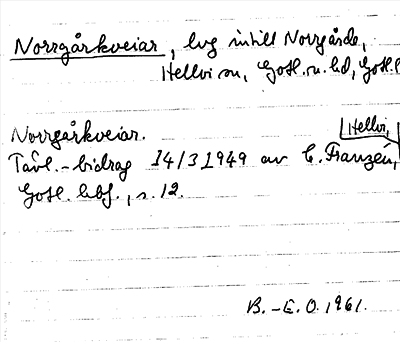 Norrgårkveiar, lvg intill Norrgårde,
Hellvi sn, Gotl. n. hd, Gotl.
Norrgårkveiar.
Hellvi,
Tävl.-bidrag 14/3 1949 av C. Franzén,
Gotl. , s. 12.
B.-E. O. 1961.